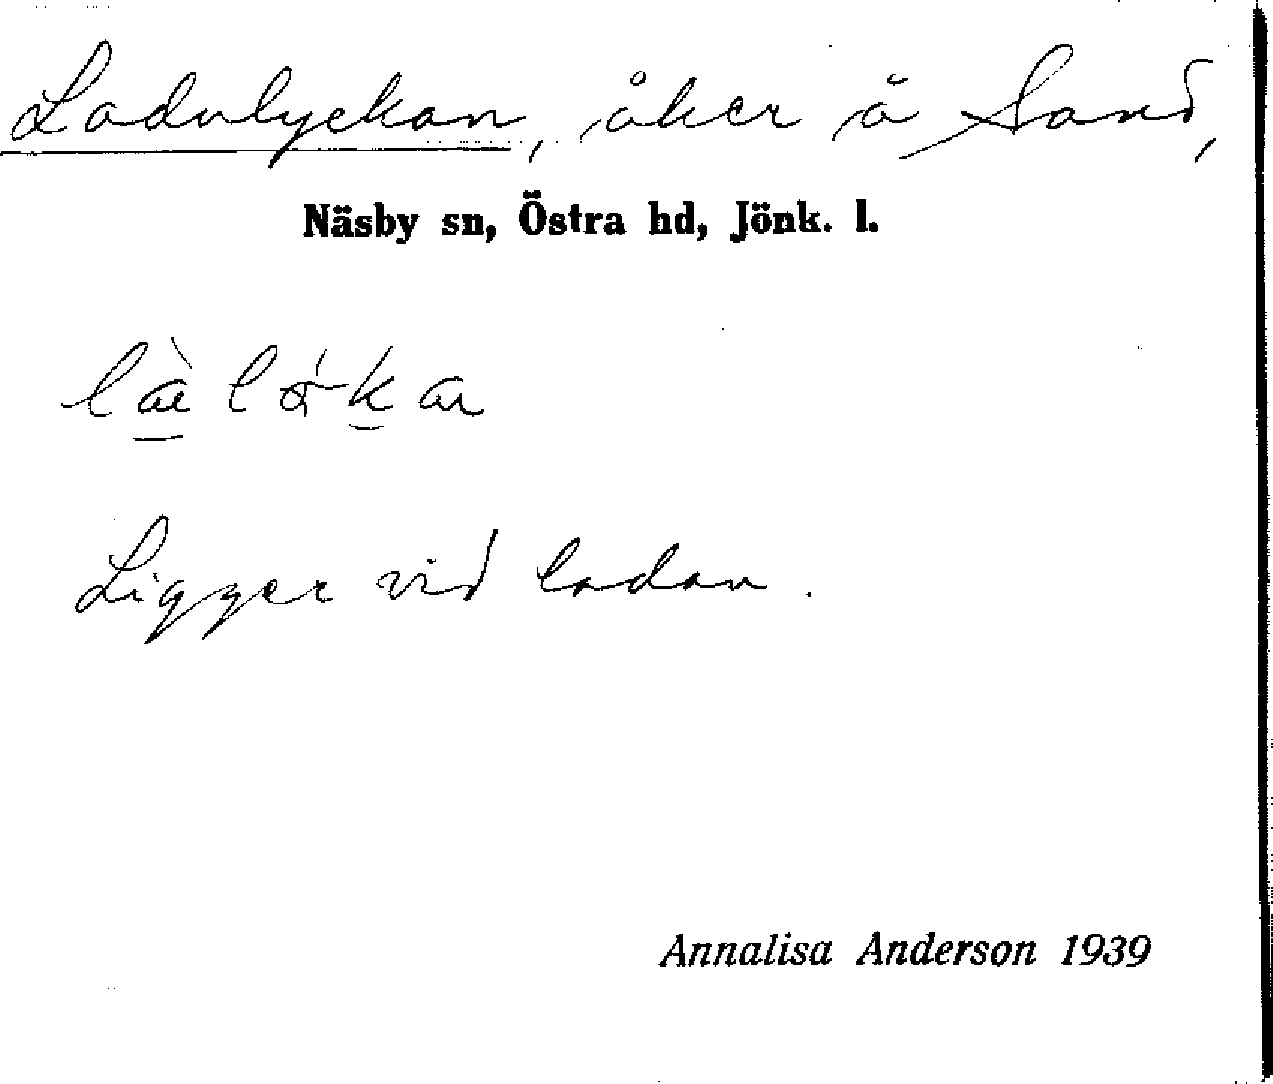 Ladulyckan, åker å Sand,
Näsby sn, Östra hd, Jönk. l.
Ligger vid ladan.
Annalisa Anderson 1939